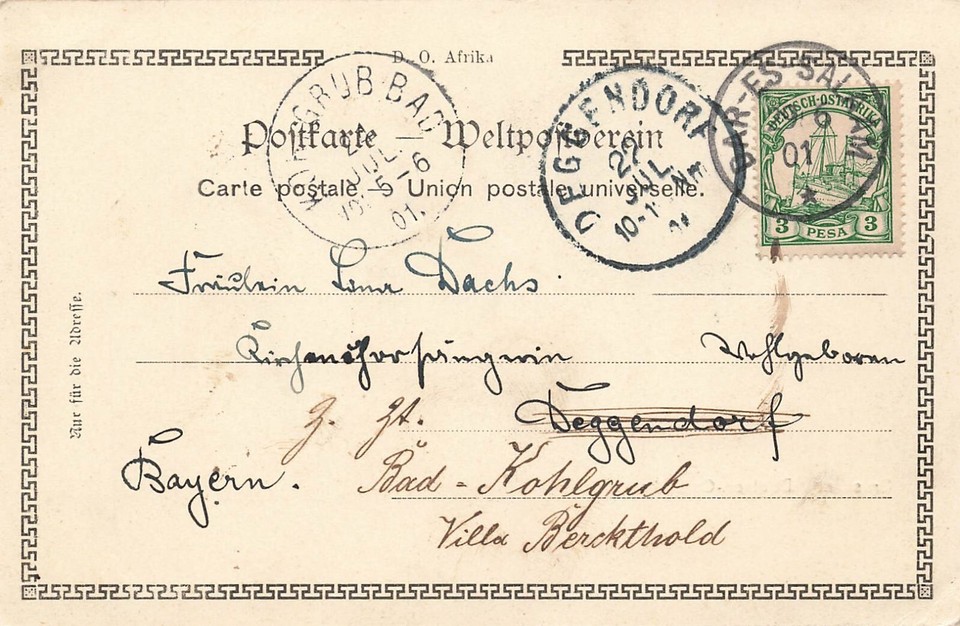 D. O. Afrika
Postkarte — Weltpostverein
Carte postale — Union postale universelle.
KOHLGRUB BAD
JUL.
5-6
01.
DEGGENDORF
22
JUL.
DAR-ES-SALAAM
6
01
DEUTSCH-OSTAFRIKA
3 PESA 3
Fräulein Dachs
Kirchenchorsängerin Wohlgeboren
z. Zt. Deggendorf
Bayern. Bad-Kohlgrub
Villa Berckthold
Nur für die Adresse.